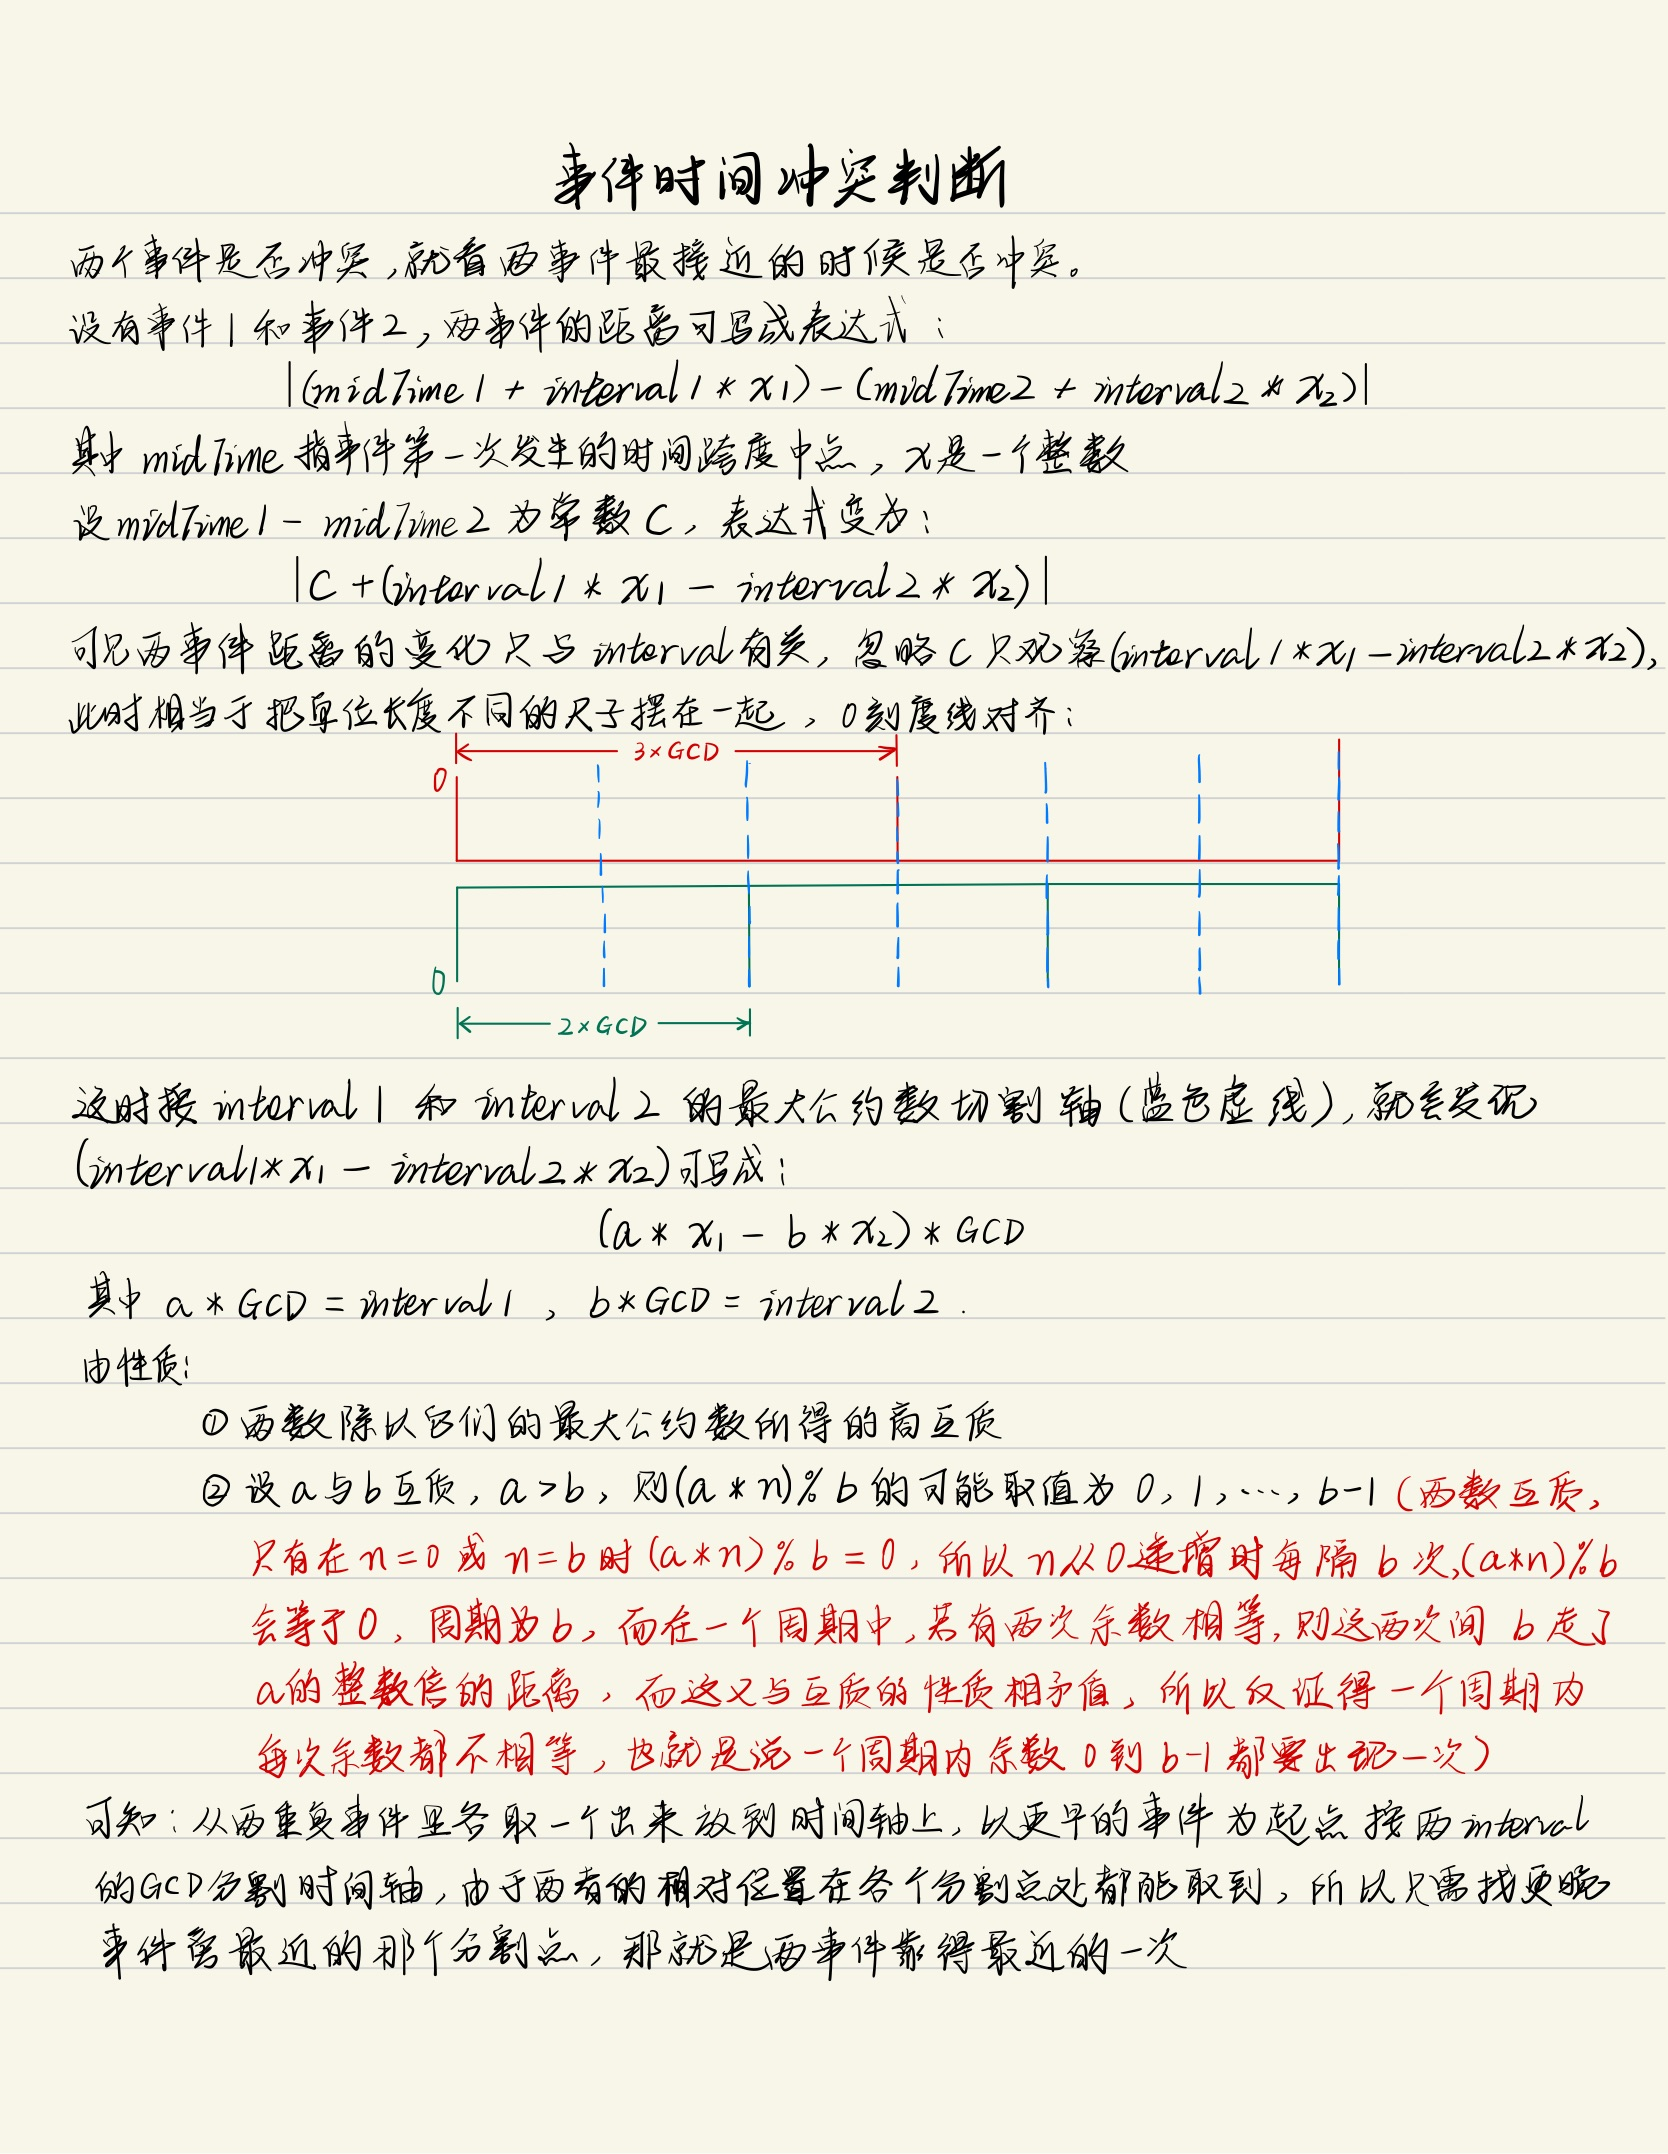 事件时间冲突判断
两个事件是否冲突,就看两事件最接近的时候是否冲突。
设有事件1和事件2,两事件的距离可写成表达式:
|(midTime1 + interval1 * x₁) - (midTime2 + interval2 * x₂)|
其中 midTime 指事件第一次发生的时间跨度中点, x是一个整数
设 midTime1 - midTime2 为常数 C, 表达式变为:
|C + (interval1 * x₁ - interval2 * x₂)|
可见两事件距离的变化只与 interval 有关, 忽略 C 只观察(interval1*x₁-interval2*x₂),
此时相当于把单位长度不同的尺子摆在一起, 0刻度线对齐:
3×GCD
0
0
2×GCD
这时按 interval1 和 interval2 的最大公约数切割轴(蓝色虚线), 就会发现
(interval1*x₁ - interval2*x₂)可写成:
(a * x₁ - b * x₂) * GCD
其中 a * GCD = interval1 , b*GCD = interval2 .
由性质:
① 两数除以它们的最大公约数所得的商互质
② 设a与b互质, a>b, 则(a*n)%b的可能取值为 0, 1, ···, b-1 (两数互质,
只有在n=0或n=b时(a*n)%b=0, 所以n从0递增时每隔b次,(a*n)%b
会等于0, 周期为b, 而在一个周期中,若有两次余数相等,则这两次间 b走了
a的整数倍的距离, 而这又与互质的性质相矛盾, 所以反证得一个周期内
每次余数都不相等, 也就是说一个周期内余数0到b-1都要出现一次)
可知: 从两重复事件里各取一个出来放到时间轴上, 以更早的事件为起点按两interval
的GCD分割时间轴, 由于两者的相对位置在各个分割点处都能取到, 所以只需找更晚
事件离最近的那个分割点, 那就是两事件靠得最近的一次